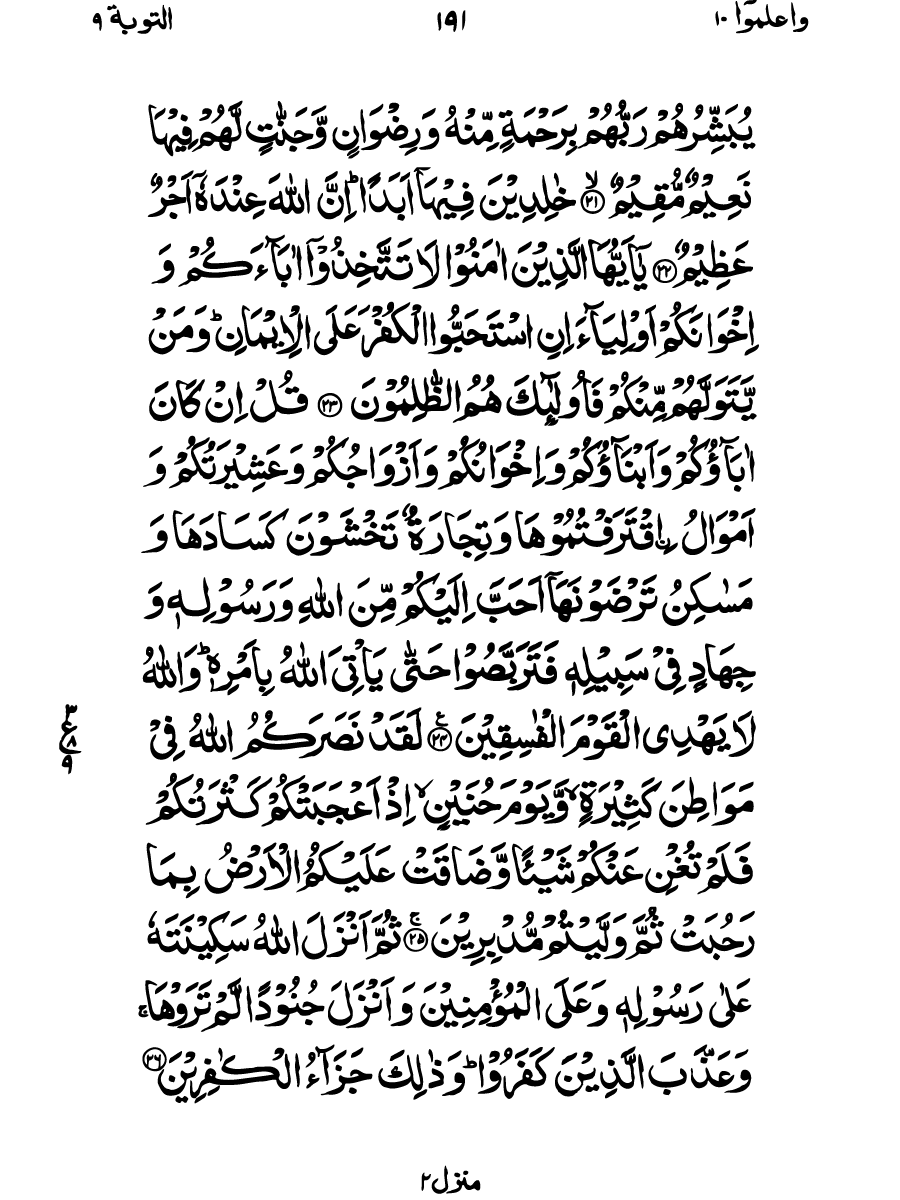 واعلموٓا ١٠ ١٩١ التوبة ٩
يُبَشِّرُهُمْ رَبُّهُمْ بِرَحْمَةٍ مِّنْهُ وَرِضْوَانٍ وَّجَنّٰتٍ لَّهُمْ فِيْهَا
نَعِيْمٌ مُّقِيْمٌ ۙ‏﴿۲۱﴾ خٰلِدِيْنَ فِيْهَاۤ اَبَدًا ؕ اِنَّ اللّٰهَ عِنْدَهٗۤ اَجْرٌ
عَظِيْمٌ ﴿۲۲﴾ يٰۤاَيُّهَا الَّذِيْنَ اٰمَنُوْا لَا تَتَّخِذُوْۤا اٰبَآءَكُمْ وَ
اِخْوَانَكُمْ اَوْلِيَآءَ اِنِ اسْتَحَبُّوا الْكُفْرَ عَلَى الْاِيْمَانِ ؕ وَمَنْ
يَّتَوَلَّهُمْ مِّنْكُمْ فَاُولٰٓئِكَ هُمُ الظّٰلِمُوْنَ ﴿۲۳﴾ قُلْ اِنْ كَانَ
اٰبَآؤُكُمْ وَاَبْنَآؤُكُمْ وَاِخْوَانُكُمْ وَاَزْوَاجُكُمْ وَعَشِيْرَتُكُمْ وَ
اَمْوَالُ ۨاقْتَرَفْتُمُوْهَا وَتِجَارَةٌ تَخْشَوْنَ كَسَادَهَا وَ
مَسٰكِنُ تَرْضَوْنَهَاۤ اَحَبَّ اِلَيْكُمْ مِّنَ اللّٰهِ وَرَسُوْلِهٖ وَ
جِهَادٍ فِىْ سَبِيْلِهٖ فَتَرَبَّصُوْا حَتّٰى يَاْتِىَ اللّٰهُ بِاَمْرِهٖ ؕ وَاللّٰهُ
لَا يَهْدِى الْقَوْمَ الْفٰسِقِيْنَ ﴿۲۴﴾ۧ لَقَدْ نَصَرَكُمُ اللّٰهُ فِىْ
٣ ع ٨ ٩
مَوَاطِنَ كَثِيْرَةٍ ۙ وَّيَوْمَ حُنَيْنٍ ۙ اِذْ اَعْجَبَتْكُمْ كَثْرَتُكُمْ
فَلَمْ تُغْنِ عَنْكُمْ شَيْـًٔا وَّضَاقَتْ عَلَيْكُمُ الْاَرْضُ بِمَا
رَحُبَتْ ثُمَّ وَلَّيْتُمْ مُّدْبِرِيْنَ ۚ‏﴿۲۵﴾ ثُمَّ اَنْزَلَ اللّٰهُ سَكِيْنَتَهٗ
عَلٰى رَسُوْلِهٖ وَعَلَى الْمُؤْمِنِيْنَ وَاَنْزَلَ جُنُوْدًا لَّمْ تَرَوْهَا ۚ
وَعَذَّبَ الَّذِيْنَ كَفَرُوْا ؕ وَذٰلِكَ جَزَآءُ الْكٰفِرِيْنَ ﴿۲۶﴾
منزل ۲